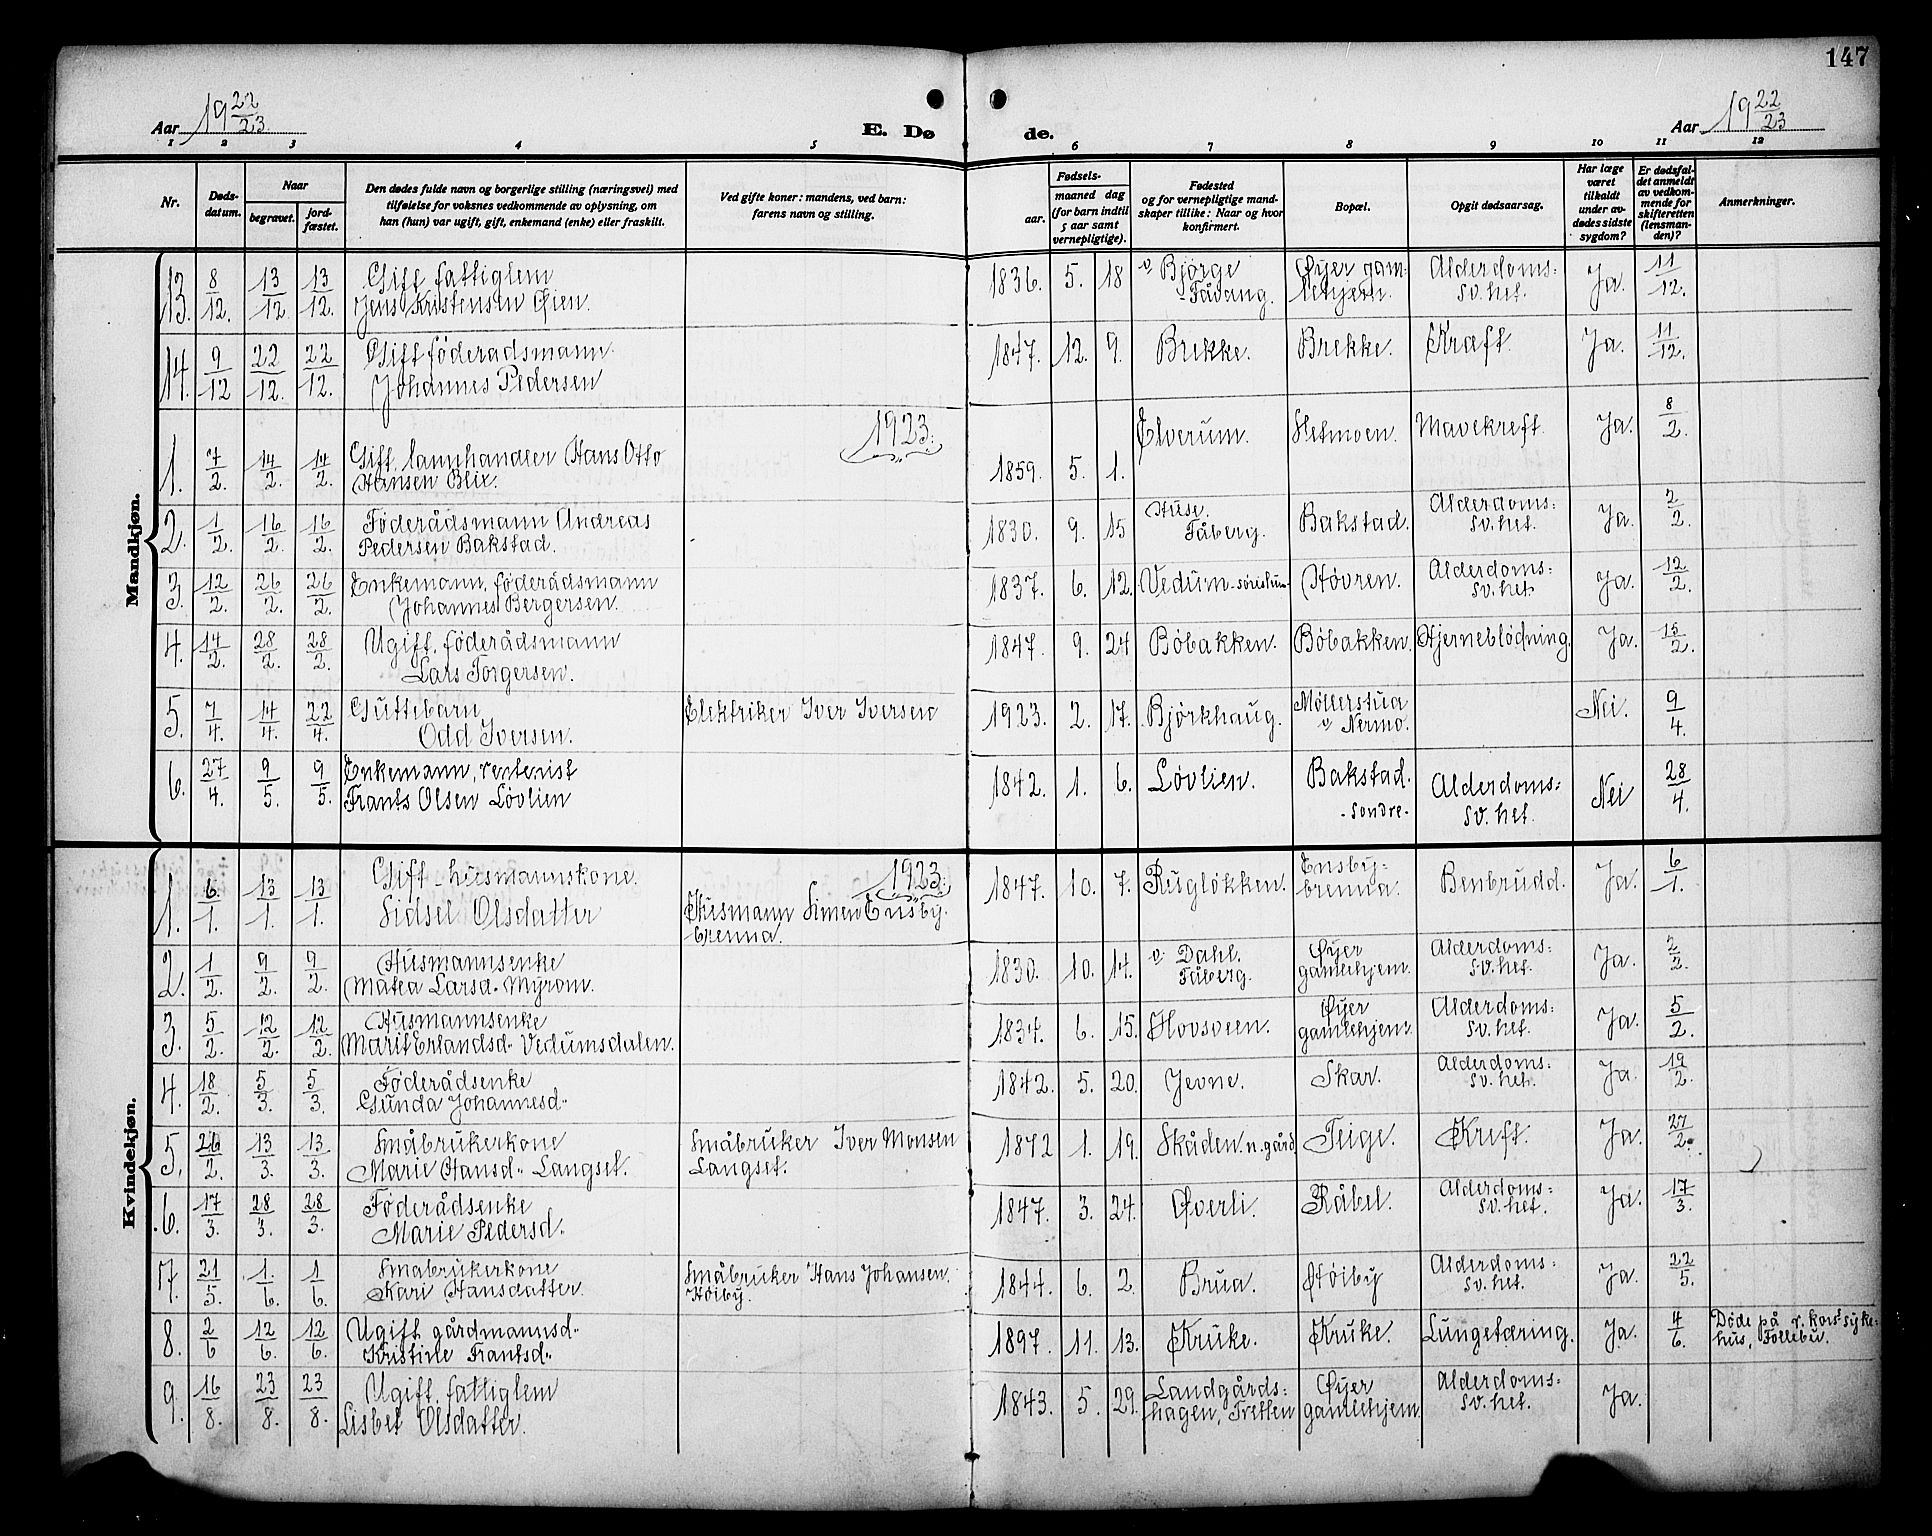 147
Aar 19 22/23
E. Dø
de.
Aar 19 22/23
1 2 3 4 5 6 7 8 9 10 11 12
Nr.
Døds-
datum.
Naar
begravet.
jord-
fæstet.
Den dødes fulde navn og borgerlige stilling (næringsvei) med
tilføielse for voksnes vedkommende av oplysning, om
han (hun) var ugift, gift, enkemand (enke) eller fraskilt.
Ved gifte koner: mandens, ved barn:
farens navn og stilling.
Fødsels-
aar.
maaned dag
(for barn indtil
5 aar samt
vernepligtige).
Fødested
og for vernepligtige mand-
skaper tillike: Naar og hvor
konfirmert.
Bopæl.
Opgit dødsaarsag.
Har læge
været
tilkaldt
under av-
dødes sidste
sygdom?
Er dødsfal-
det anmeldt
av vedkom-
mende for
skifteretten
(lensman-
den)?
Anmerkninger.
Mandkjøn.
13. 8/12. 13/12 13/12. Gift fattiglem
Jens Kristensen Øien. 1836. 5. 18 v Bjørge
Fåvang. Øyer gam-
lehjem. Alderdoms:
sv. het. Ja. 11/12.
14. 9/12 22/12. 22/12. Gift föderadsmann.
Johannes Pedersen 1847. 12. 9. Brekke. Brekke. Kræft. Ja. 11/12.
1923.
1. 7/2. 14/2. 14/2. Gift, lannhandler Hans Otto
Hansen Blix. 1859. 5. 1. Elverum. Hetmoen. Mavekreft. Ja. 8/2.
2. 1/2. 16/2. 16/2. Föderådsmann Andreas
Pedersen Bakstad. 1830. 9. 15 Huse.
Fåberg. Bakstad. Alderdoms:
sv. het. Ja. 2/2.
3. 12/2. 26/2. 26/2. Enkemann, föderådsmann
Johannes Bergersen. 1837. 6. 12. Vedum- Hovren. Alderdoms:
sv. het Ja. 12/2.
4. 14/2. 28/2. 28/2. Ugift, föderådsmann
Lars Torgersen. 1847. 9. 24 Böbakken. Böbakken. Hjerneblödning. Ja. 15/2.
5. 7/4. 14/4. 22/4. Guttebarn
Odd Iversen. Elektriker Iver Iversen 1923. 2. 17. Bjørkhaug. Möllerstua
v Nermo. Nei. 9/4.
6. 27/4. 9/5. 9/5. Enkemann, rentenist
Frants Olsen Lövlien 1842. 1. 6. Lövlien. Bakstad.
- søndre - Alderdoms:
sv. het. Nei 28/4.
Kvindekjøn.
1923.
1. 6/1. 13/1. 13/1. Gift - husmannskone.
Sidsel Olsdatter Husmann Simen Ensby-
brenna. 1847. 10. 7. Buglökken. Ensby-
brenna. Benbrudd. Ja. 6/1.
2. 1/2. 9/2. 9/2. Husmannsenke
Matea Larsd. Myrom. 1830. 10. 14. v Dahl.
Fåberg. Øyer
gamlehjem. Alderdoms:
sv. het. Ja. 2/2.
3. 5/2. 12/2. 12/2. Husmannsenke
Marit Erlandsd. Vedumsdalen. 1834. 6. 15. Hovsveen. Øyer
gamlehjem. Alderdoms:
sv. het. Ja. 5/2.
4. 18/2. 5/3. 5/3. Föderådsenke
Gunda Johannesd. 1842. 5. 20. Jevne. Skar. Alderdoms:
sv. het. Ja. 19/2.
5. 26/2. 13/3. 13/3. Småbrukerkone
Marie Hansd. Langset. Småbruker Iver Monsen
Langset. 1872 1. 19. Skåden n. gård Teige. Kreft. Ja. 27/2.
6. 17/3. 28/3. 28/3. Föderådsenke
Marie Pedersd. 1847. 3. 24. Øverli. Råbel. Alderdoms:
sv. het. Ja. 17/3.
7. 21/5. 1/6. 1/6. Småbrukerkone
Kari Hansdatter. Småbruker Hans Johansen.
Høiby. 1844. 6. 2. Brua. Høiby Alderdoms:
sv. het. Ja. 22/5.
8. 2/6 12/6. 12/6. Ugift, gårdmannsd.
Kristine Frantsd. 1897. 11. 13. Kruke. Kruke. Lungetæring. Ja. 4/6. Døde på r. kors syke-
hus, Follebu.
9. 16/8. 23/8. 23/8. Ugift, fattiglem
Lisbet Olsdatter. 1843. 5. 29. Landgårds:
hagen, Tretten Øyer
gamlehjem. Alderdoms:
sv. het. Ja.